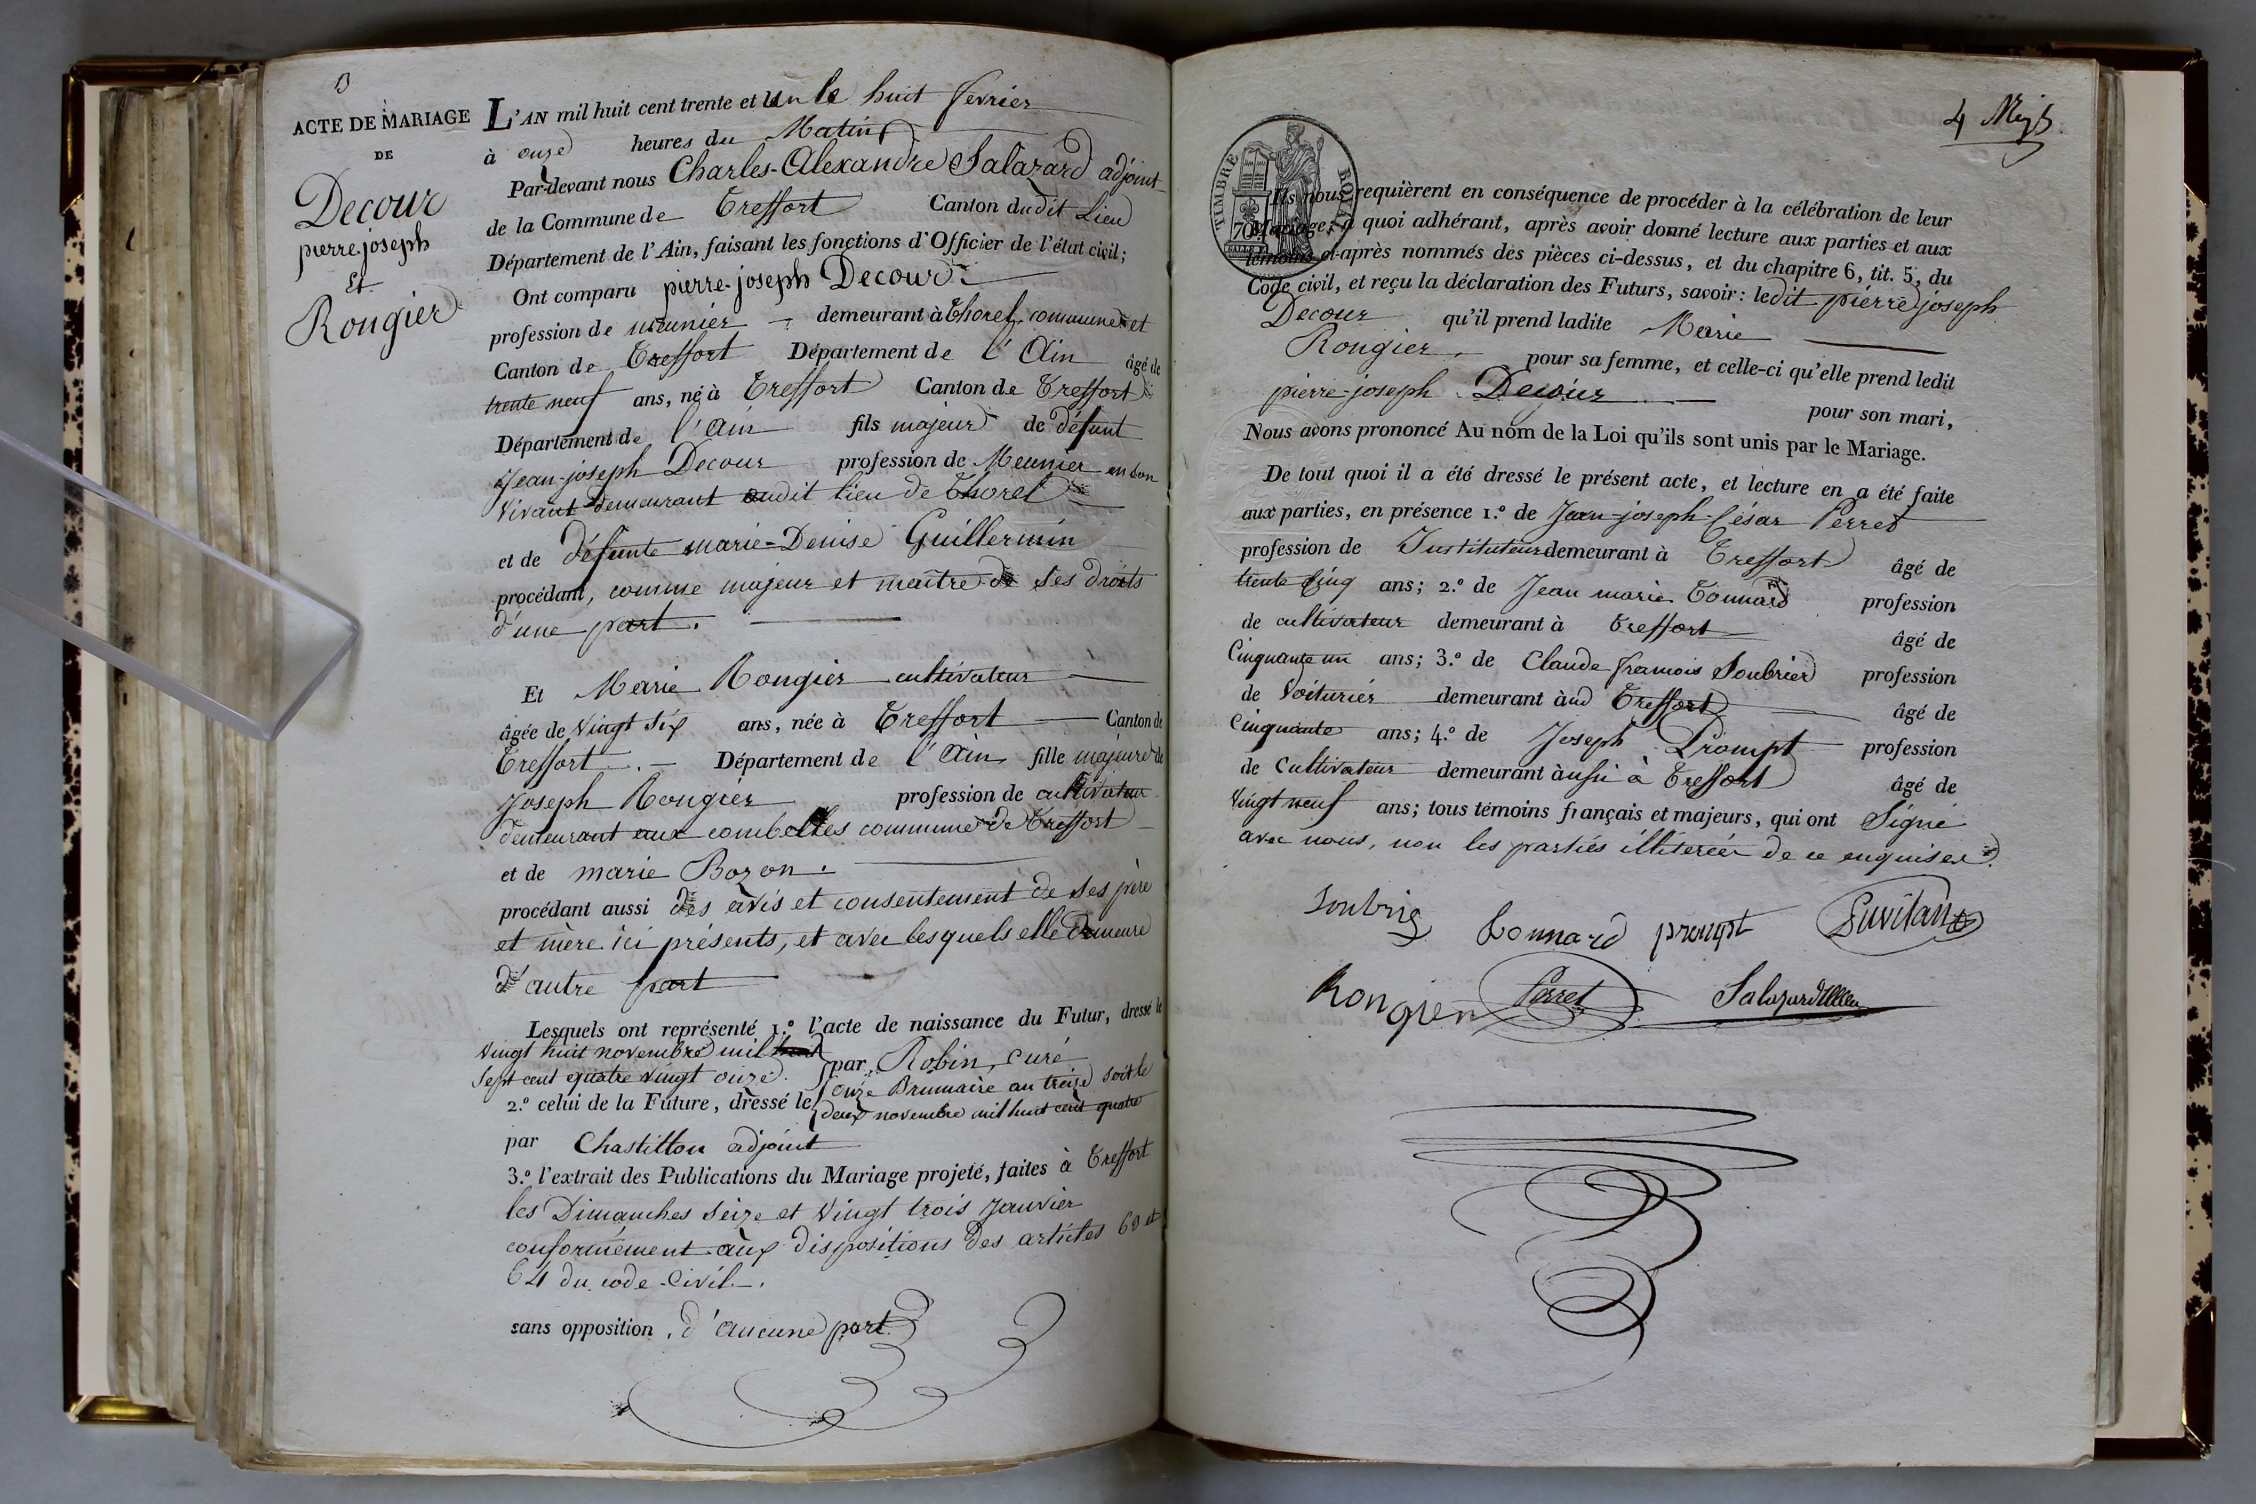 ACTE DE MARIAGE
DE
Decour
pierre joseph
Et
Rougier
L'AN mil huit cent trente et un le huit fevrier
à onze heures du Matin
Par-devant nous Charles-Alexandre Salazard adjoint
de la Commune de Treffort Canton dudit Lieu
Département de l'Ain, faisant les fonctions d'Officier de l'état civil;
Ont comparu pierre-joseph Decour
profession de meunier demeurant à Thoret, commune et
Canton de Treffort Département de l'Ain âgé de
trente neuf ans, né à Treffort Canton de Treffort
Département de l'Ain fils majeur de défunt
Jean-joseph Decour profession de Meunier en son
vivant demeurant audit lieu de Thoret
et de défunte marie-Denise Guillermin
procédant, comme majeur et maître de ses droits
d'une part.
Et Marie Rougier cultivateur
âgée de vingt six ans, née à Treffort Canton de
Treffort Département de l'Ain fille majeure de
Joseph Rougier profession de cultivateur
demeurant aux combettes commune de Treffort
et de marie Bozon.
procédant aussi des avis et consentement de ses père
et mère ici présents, et avec lesquels elle demeure
d'autre part
Lesquels ont représenté 1.º l'acte de naissance du Futur, dressé le
vingt huit novembre mil
sept cent quatre vingt onze. par Robin, curé
2.º celui de la Future, dressé le onze Brumaire an treize soit le
deux novembre mil huit cent quatre
par Chastillon adjoint
3.º l'extrait des Publications du Mariage projeté, faites à Treffort
les Dimanches seize et vingt trois Janvier
conformément aux dispositions des articles 63 et
64 du code-Civil.
sans opposition, d'aucune part
4
TIMBRE ROYAL
70
Ils nous requièrent en conséquence de procéder à la célébration de leur
Mariage; à quoi adhérant, après avoir donné lecture aux parties et aux
témoins ci-après nommés des pièces ci-dessus, et du chapitre 6, tit. 5, du
Code civil, et reçu la déclaration des Futurs, savoir: ledit pierre joseph
Decour qu'il prend ladite Marie
Rougier pour sa femme, et celle-ci qu'elle prend ledit
pierre-joseph Decour pour son mari,
Nous avons prononcé Au nom de la Loi qu'ils sont unis par le Mariage.
De tout quoi il a été dressé le présent acte, et lecture en a été faite
aux parties, en présence 1.º de Jean-joseph-César Perret
profession de Instituteur demeurant à Treffort âgé de
trente cinq ans; 2.º de Jean marie Tonnard profession
de cultivateur demeurant à Treffort âgé de
Cinquante un ans; 3.º de Claude francois Soubrier profession
de Voiturier demeurant àud Treffort âgé de
Cinquante ans; 4.º de Joseph Prompt profession
de Cultivateur demeurant àussi à Treffort âgé de
vingt neuf ans; tous témoins français et majeurs, qui ont Signé
avec nous, non les parties illiterées de ce enquises.
Tonnard prompt
Rougier Perret Salazard